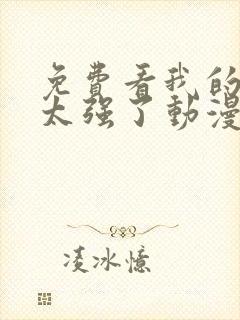 免費看我的
太强了動漫
凌冰憶